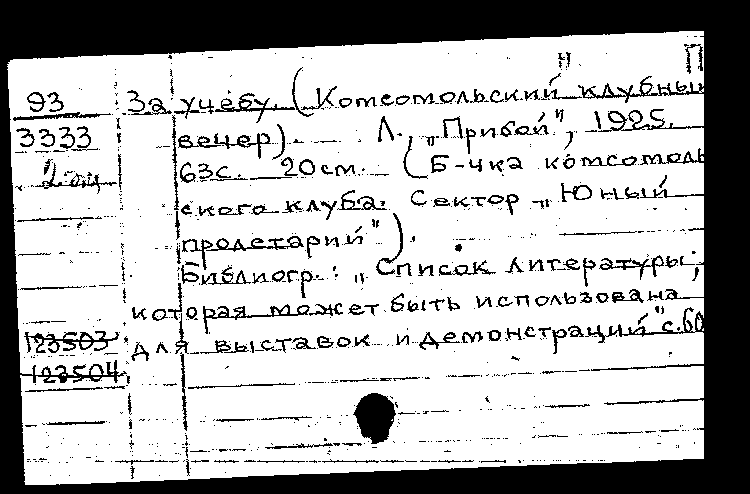 П
93 За учебу. (Комсомольский клубны
3333 вечер). Л., „Прибой", 1925.
2 экз 63с. 20см. (Б-чка комсомоль
ского клуба. Сектор „Юный
пролетарий").
Библиогр.: „Список литературы,
которая может быть использована
123503 для выставок и демонстраций" с.60
123504